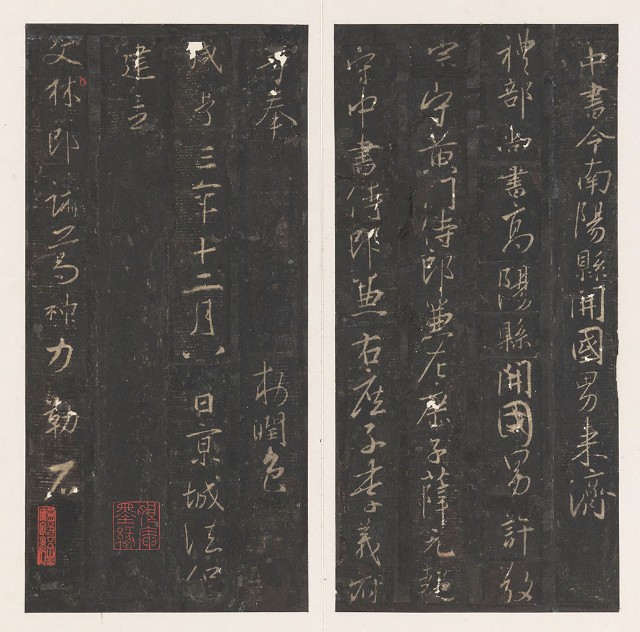 中書令南陽縣開國男來濟
禮部尚書高陽縣開國男許敬
宗守黃門侍郎兼左庶子薛元超
守中書侍郎兼右庶子李義府
等奉 敕潤色
咸亨三年十二月八日京城法侶
建立
文林郎諸葛神力勒石